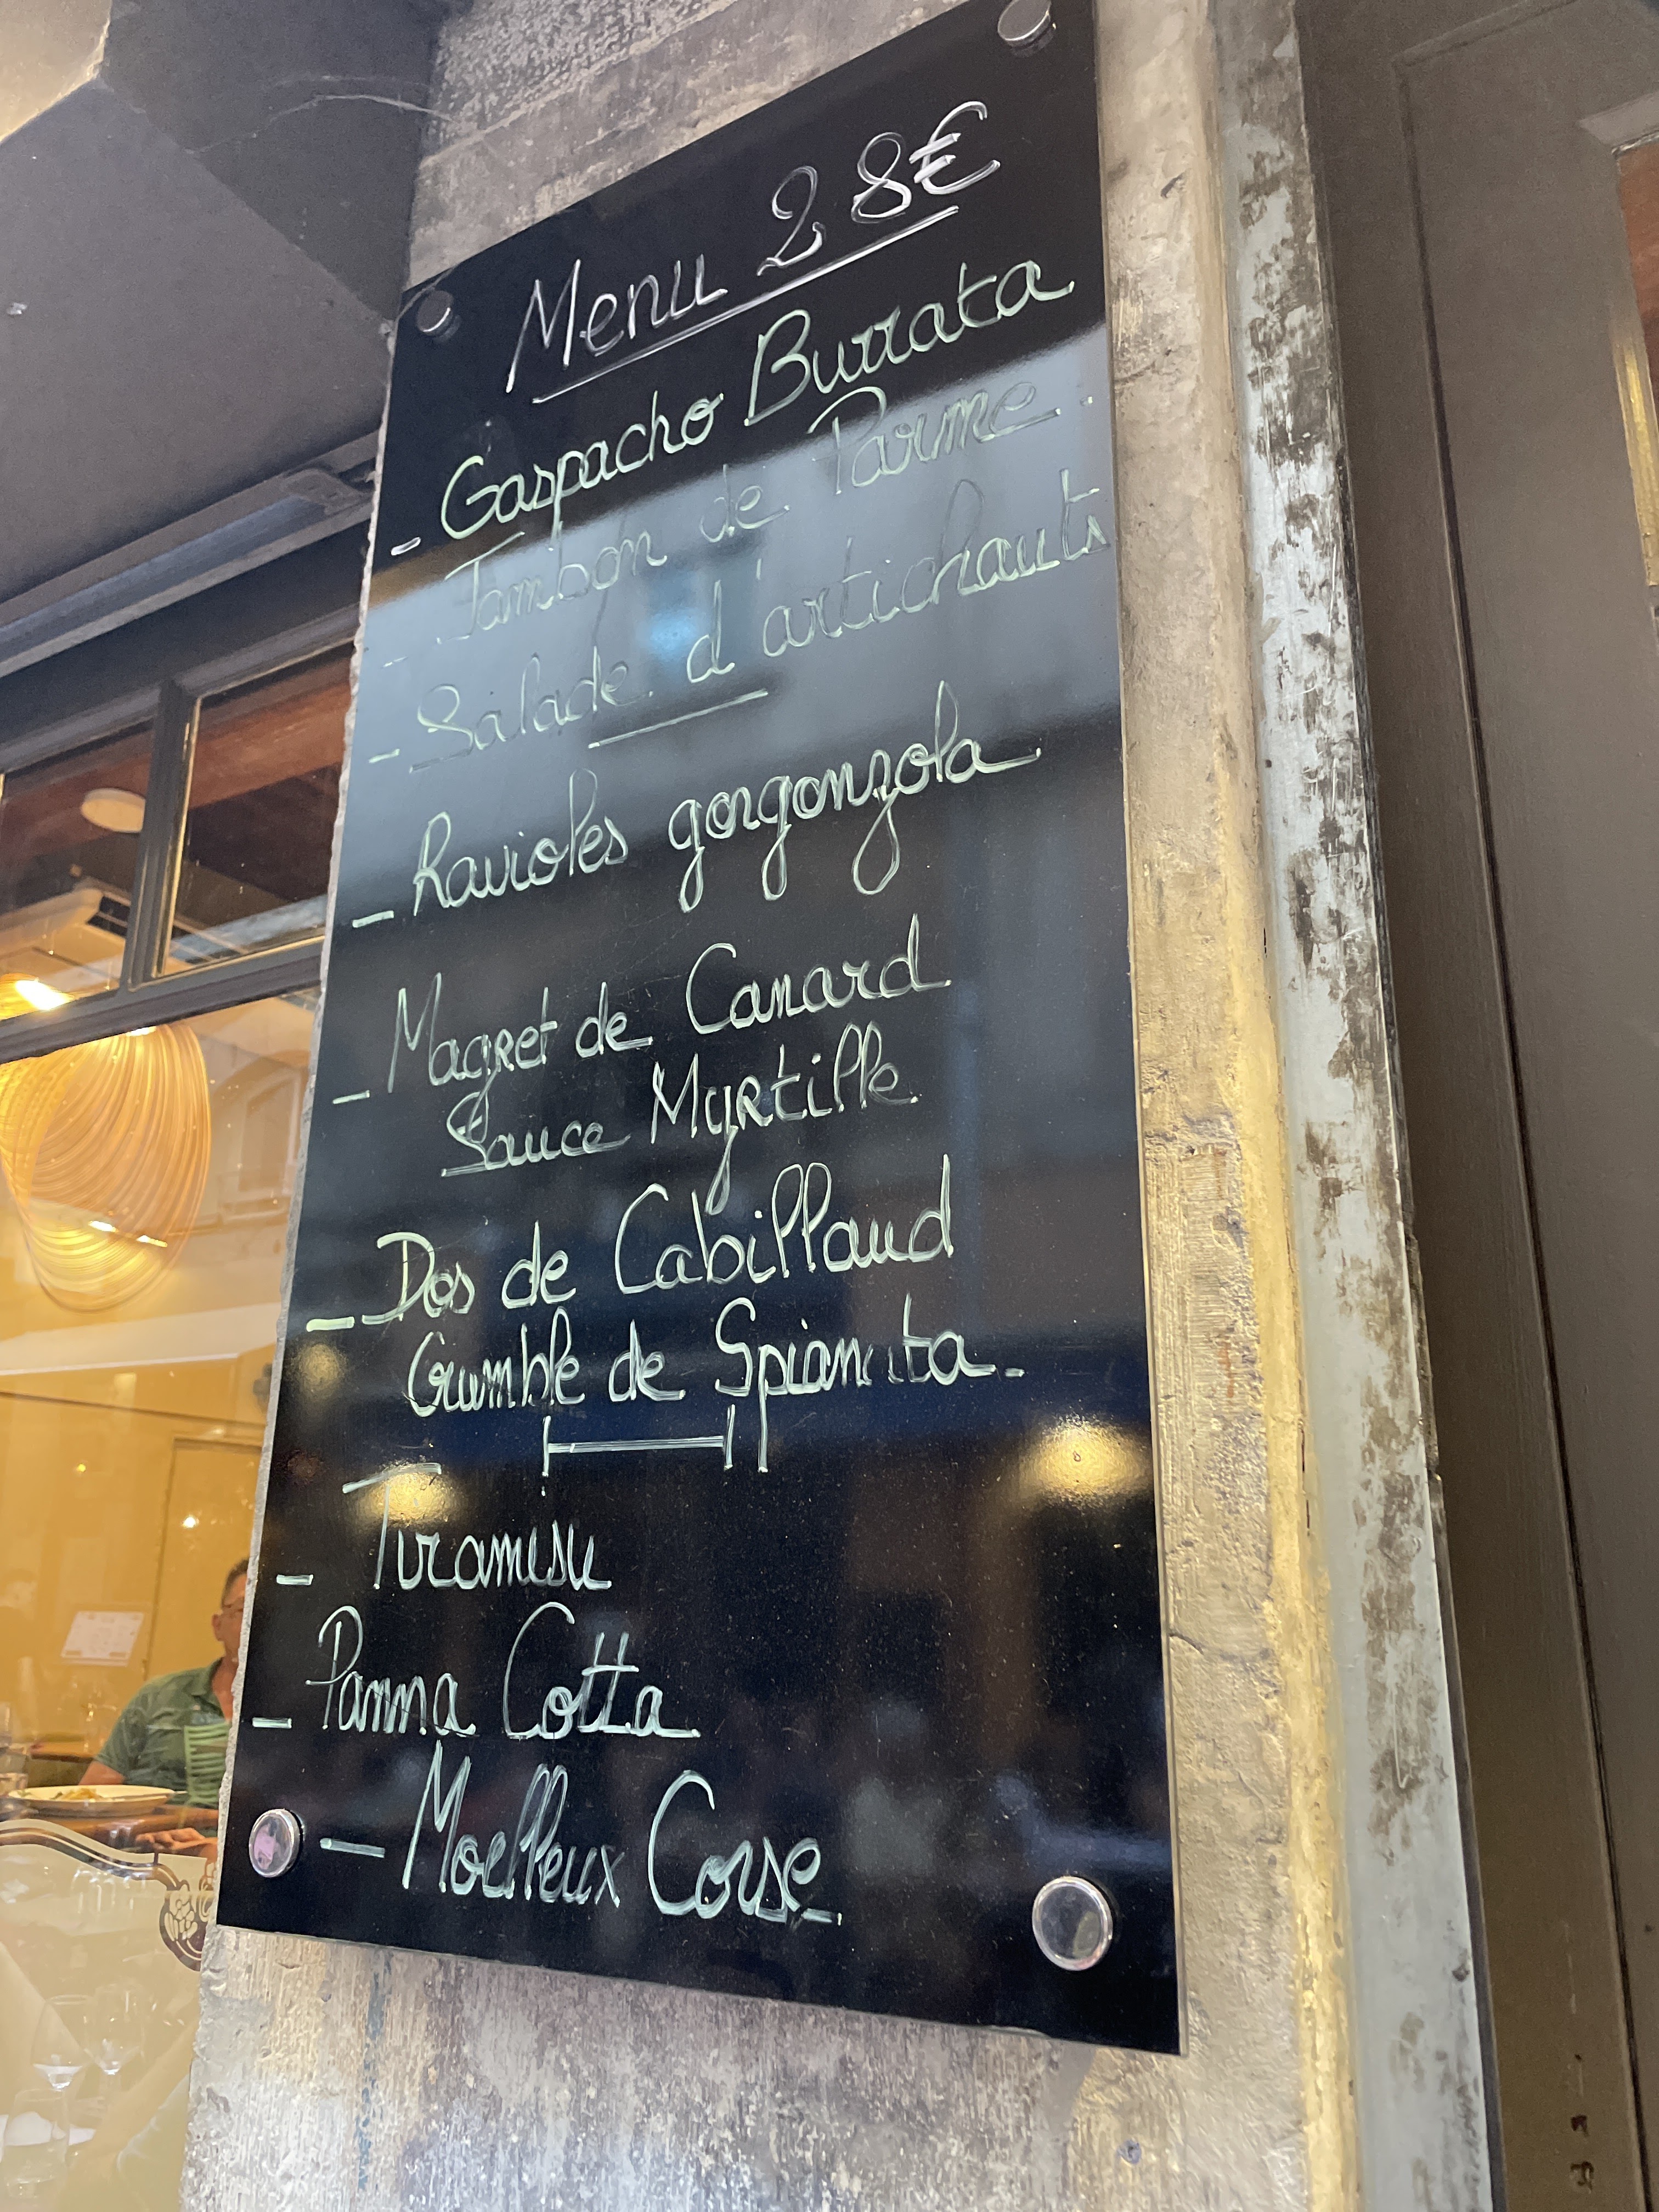 Menu 28€
- Gaspacho Burrata
- Jambon de Parme
- Salade d'artichauts
- Ravioles gorgonzola
- Magret de Canard
Sauce Myrtille
- Dos de Cabillaud
Crumble de Spianata
- Tiramisu
- Panna Cotta
- Moelleux Corse